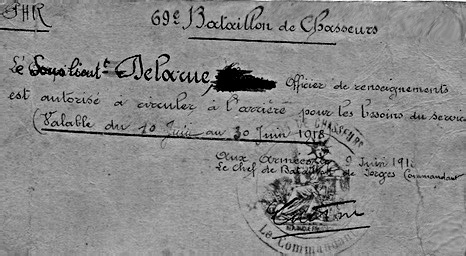 PHR
69e Bataillon de Chasseurs
Le Sous lieut t Delarue, Officier de renseignements
est autorisé à circuler à l'arrière pour les besoins du service
(Valable du 10 Juin au 30 Juin 1918
CHASSEURS
Aux Armées, 9 Juin 191
Le Chef de Bataillon de Torges Commandant
Le Commandant